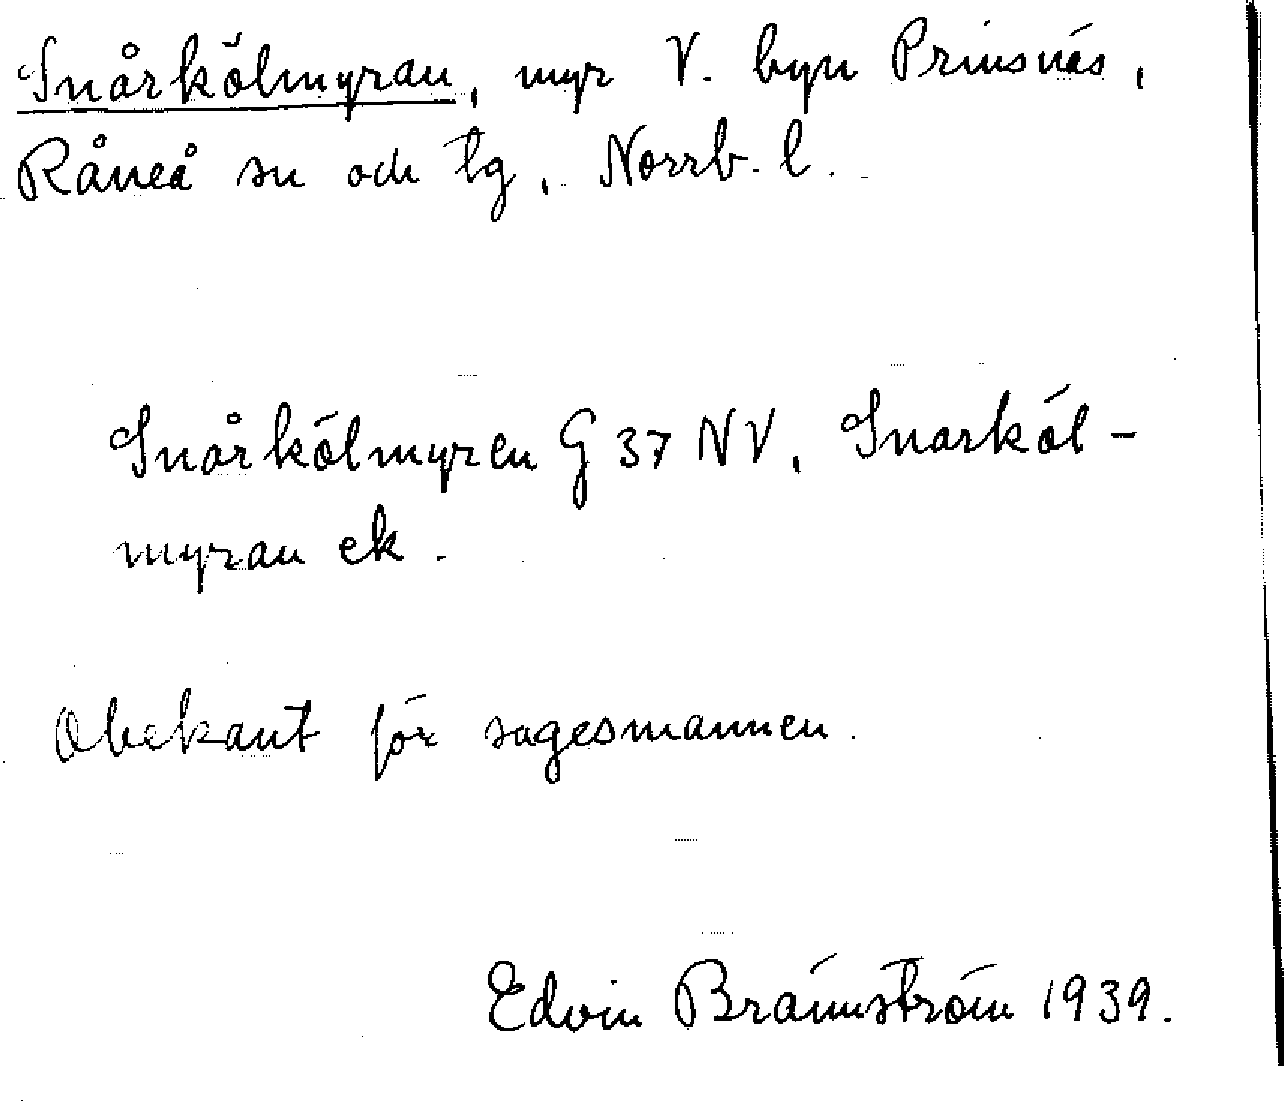 Snårkölmyran, myr V. byn Prinsnäs,
Råneå sn och tg, Norrb. l.
Snårkölmyren G 37 NV, Snarköl-
myran ek.
Obekant för sagesmannen.
Edvin Brännström 1939.